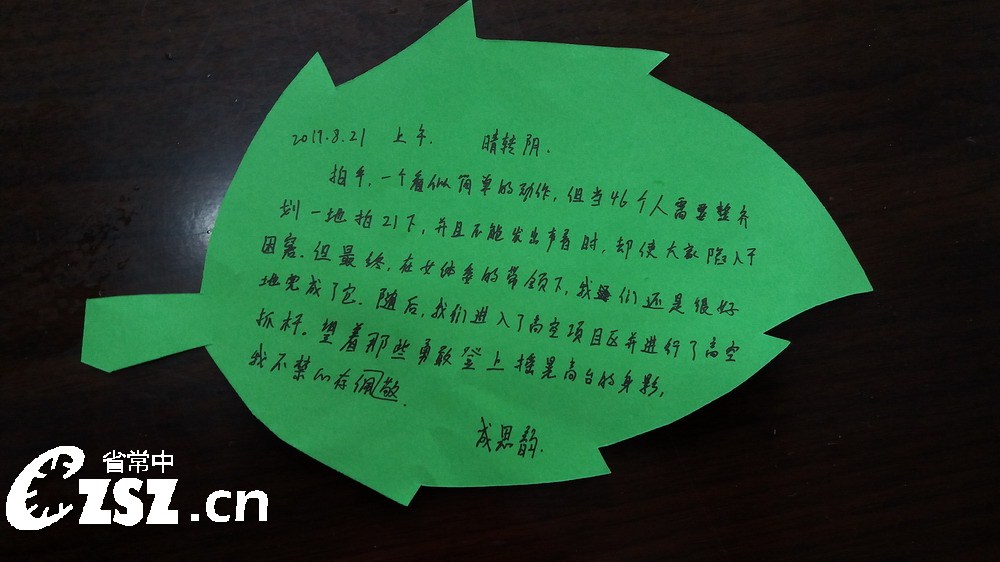 2017.8.21 上午. 晴转阴.
拍手,一个看似简单的动作,但当46个人需要整齐
划一地拍21下,并且不能发出声音时,却使大家陷入了
困窘.但最终,在女体委的带领下,我们还是很好
地完成了它.随后,我们进入了高空项目区并进行了高空
抓杆。望着那些勇敢登上摇晃高台的身影,
我不禁心存佩敬.
成思韵.
省常中
CZSZ.cn